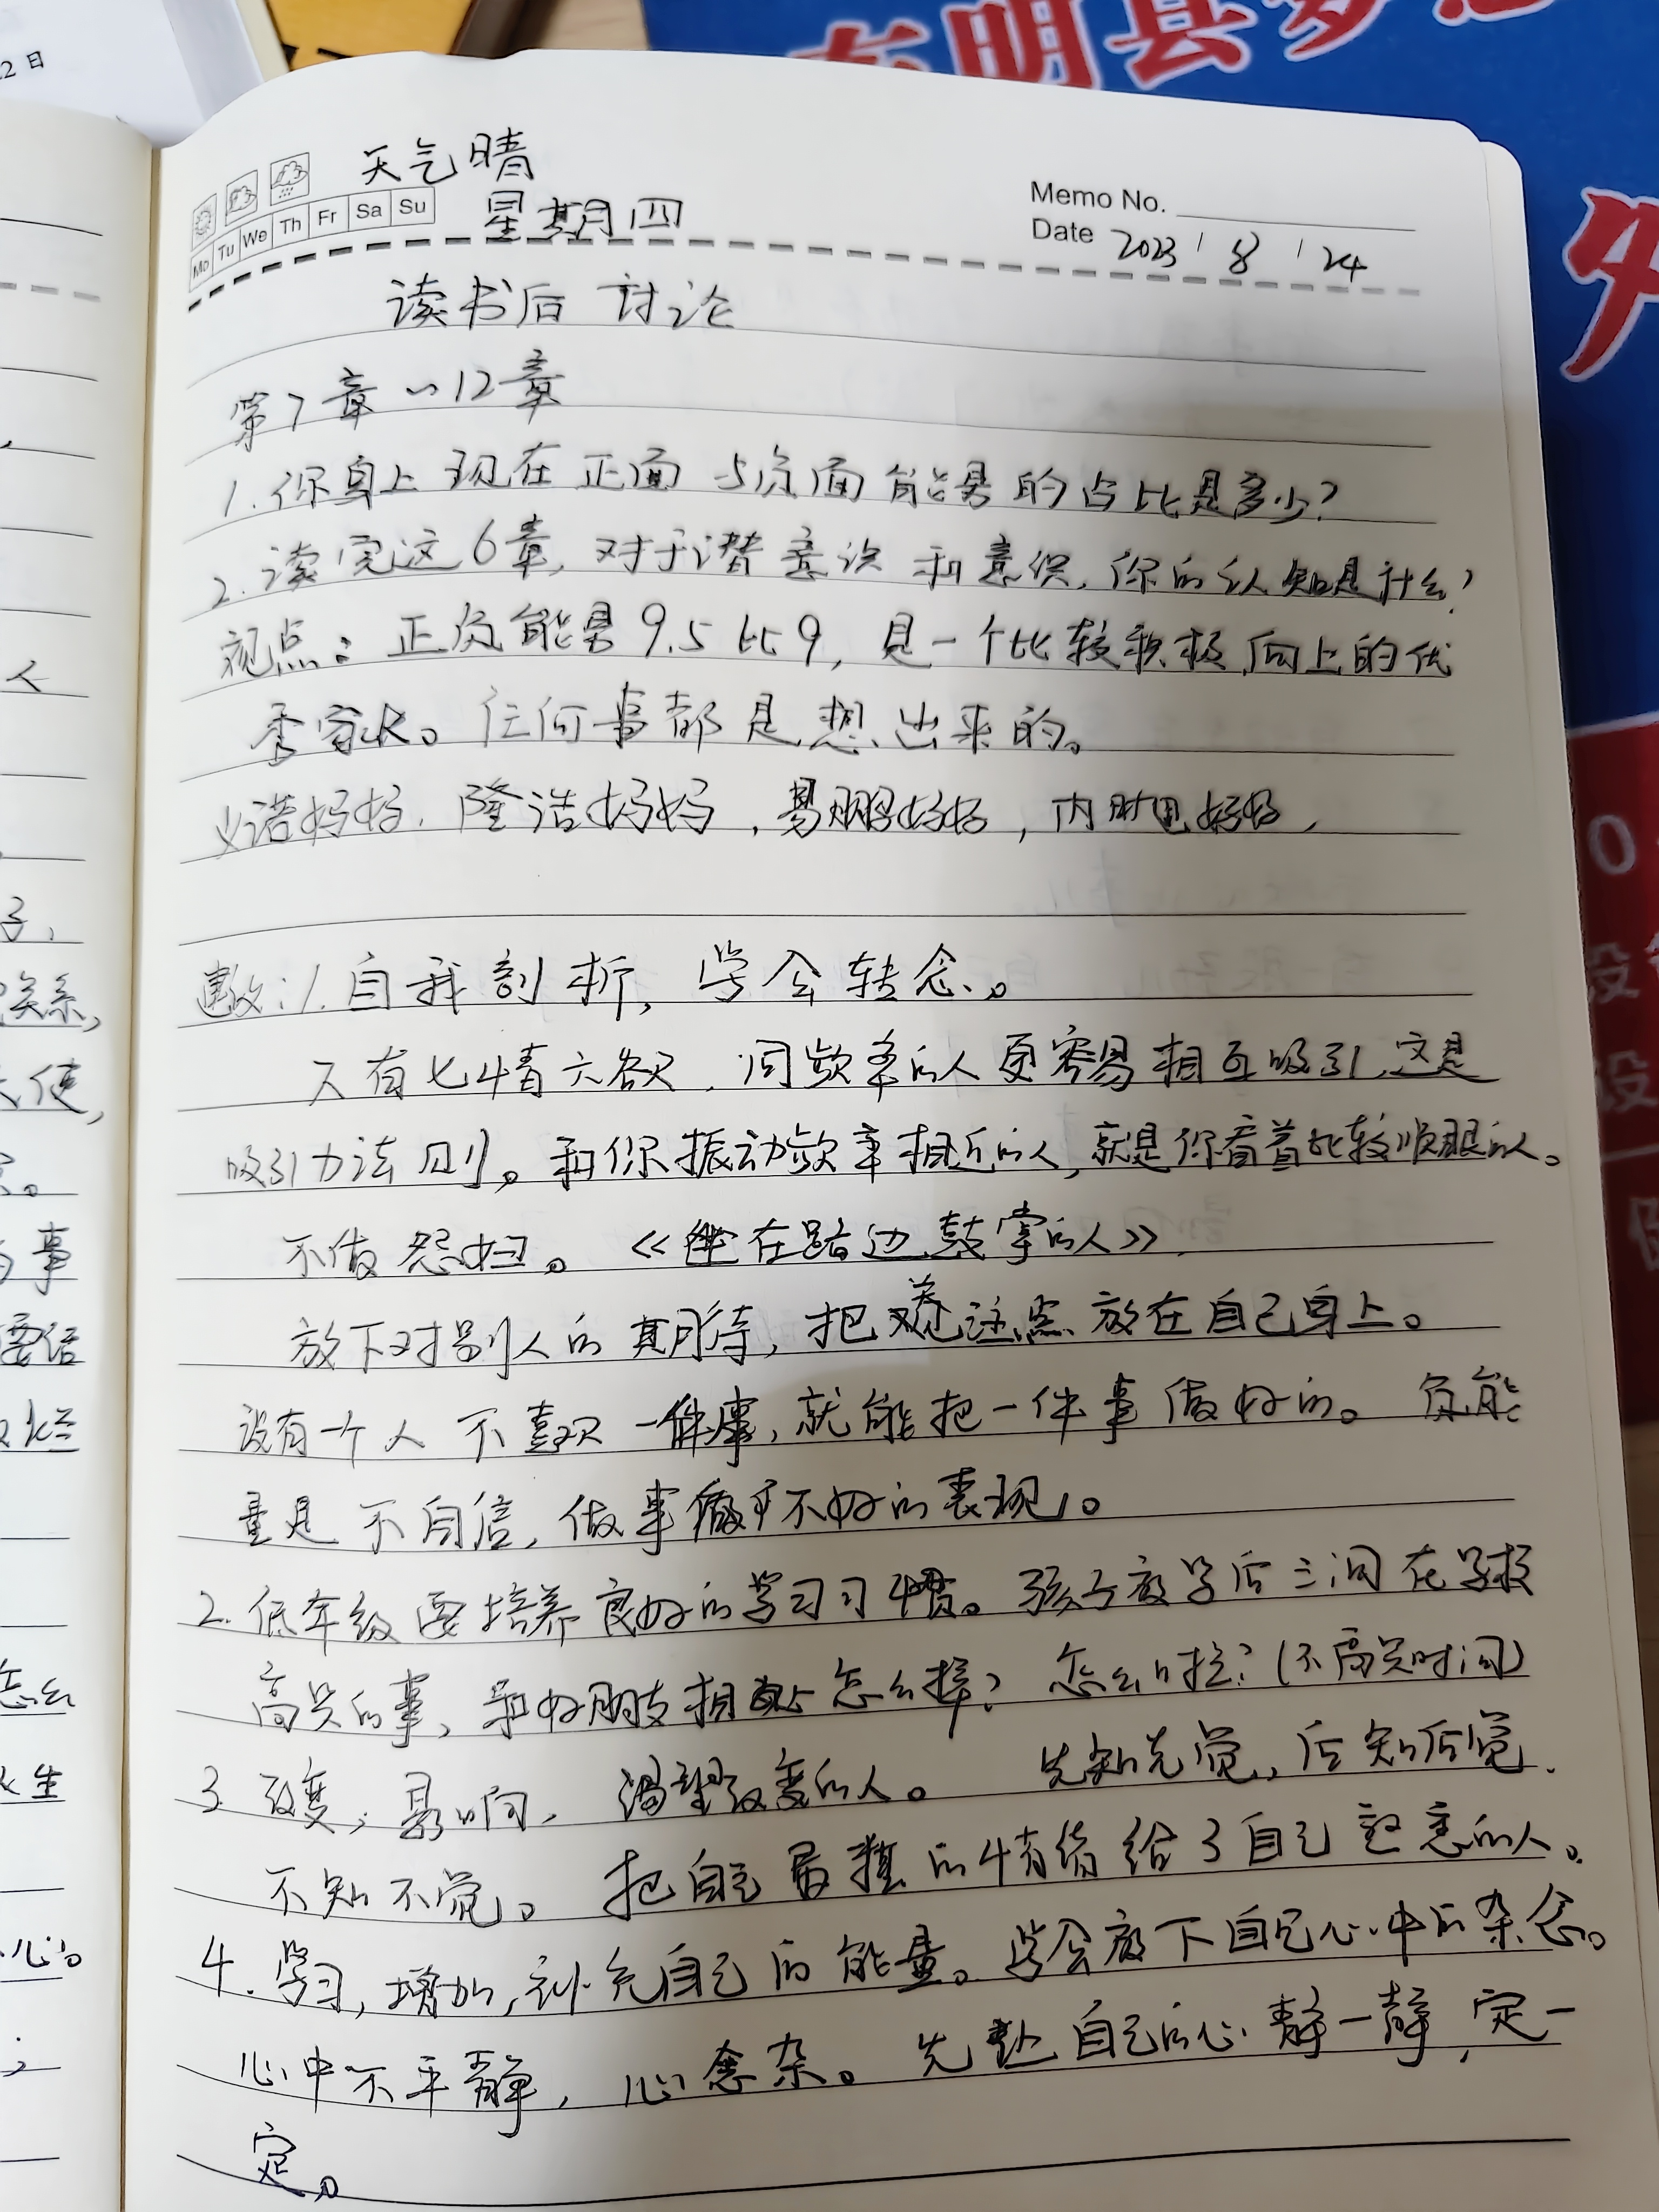 2日
东明县
天气晴
星期四
Mo Tu We Th Fr Sa Su
Memo No.
Date 2023 / 8 / 24
读书后 讨论
第7章~12章
1.你身上现在正面与负面能量的占比是多少?
2.读完这6章,对于潜意识和意识,你的认知是什么?
观点:正负能量9.5比9,是一个比较积极向上的优
秀家长。任何事都是想出来的。
诺妈妈.隆浩妈妈,易鹏妈妈,妈妈,
:1.自我剖析,学会转念。
人有七情六欲,同频率的人更容易相互吸引,这是
吸引力法则。和你振动频率相近的人,就是你看着比较顺眼的人。
不做怨妇。《坐在路边鼓掌的人》
放下对别人的期待,把关注点放在自己身上。
没有一个人不喜欢一件事,就能把一件事做好的。负能
量是不自信,做事做不好的表现。
2.低年级要培养良好的学习习惯。孩子放学后三问在学校
高兴的事,和好朋友相处怎么样?怎么吃?(不高兴时问)
3.改变,影响,渴望改变的人。 先知先觉,后知后觉.
不知不觉。把自己最糟的情绪给了自己熟悉的人。
4.学习,增加,补充自己的能量。学会放下自己心中的杂念。
心中不平静,心念杂。先让自己的心静一静,定一
定。
人
子,
关系,
使,
事
要活
怎么
生
心。